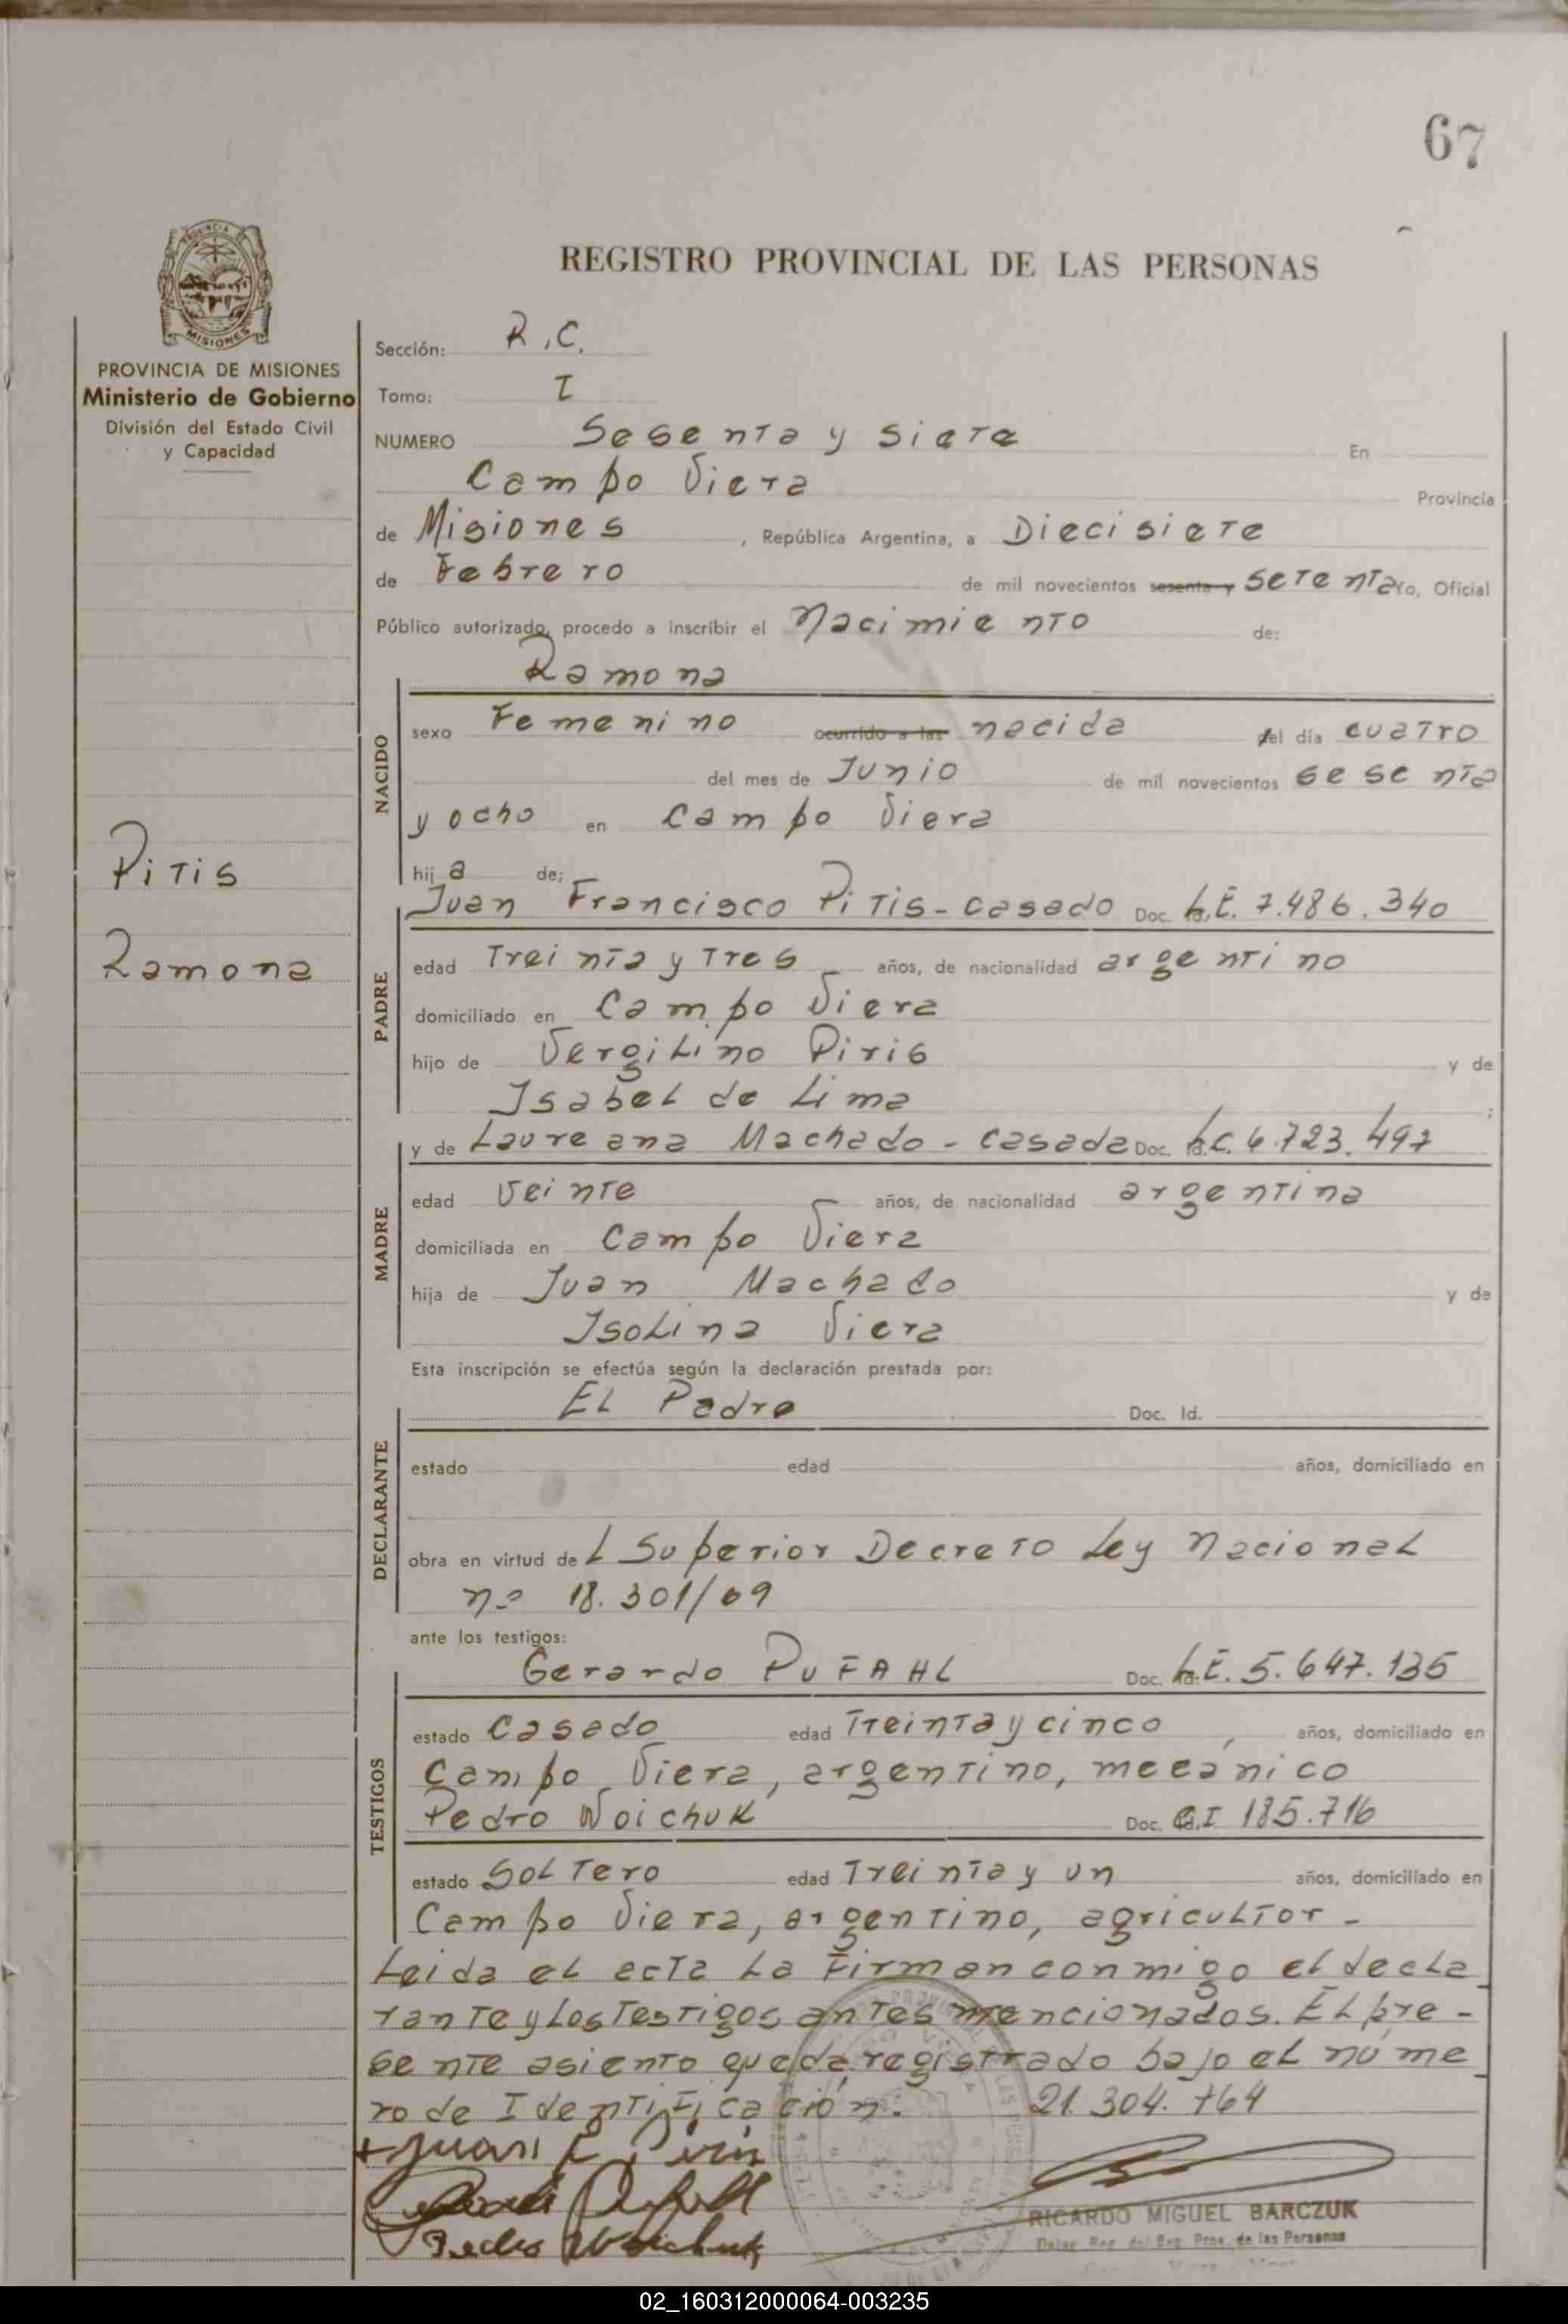 67
REGISTRO PROVINCIAL DE LAS PERSONAS
PROVINCIA DE MISIONES
MISIONES
PROVINCIA DE MISIONES
Ministerio de Gobierno
División del Estado Civil
y Capacidad
Pitis
Ramona
Sección: R.C.
Tomo: I
NUMERO Sesenta y siete En
Campo Viera Provincia
de Misiones, República Argentina, a Diecisiete
de Febrero de mil novecientos sesenta y setenta Yo, Oficial
Público autorizado, procedo a inscribir el Nacimiento de:
NACIDO
Ramona
sexo Femenino ocurrido a las nacida del día cuatro
del mes de Junio de mil novecientos sesenta
y ocho en Campo Viera
hija de:
PADRE
Juan Francisco Pitis - casado Doc. L.E. 7.486.340
edad Treinta y Tres años, de nacionalidad argentino
domiciliado en Campo Viera
hijo de Vergilino Piris y de
Isabel de Lima ;
MADRE
y de Laureana Machado - casada Doc. L.C. 6.723.497
edad veinte años, de nacionalidad argentina
domiciliada en Campo Viera
hija de Juan Machado y de
Isolina Viera
Esta inscripción se efectúa según la declaración prestada por:
DECLARANTE
El Padre Doc. Id.
estado edad años, domiciliado en
obra en virtud de l Superior Decreto Ley Nacional
nº 18.301/69
ante los testigos:
TESTIGOS
Gerardo PUFAHL Doc. L.E. 5.647.135
estado casado edad Treinta y cinco, años, domiciliado en
Campo Viera, argentino, mecánico
Pedro Woichuk Doc. C.I 185.716
estado Soltero edad Treinta y un años, domiciliado en
Campo Viera, argentino, agricultor -
Leida el acta la Firman conmigo el decla_
rante y los Testigos antes mencionados. El pre-
sente asiento queda registrado bajo el núme_
ro de Identificación. 21.304.764
Juan F. Piris
Pedro Woichuk
RICARDO MIGUEL BARCZUK
Deleg. Reg. del Reg. Prov. de las Personas
02_160312000064-003235